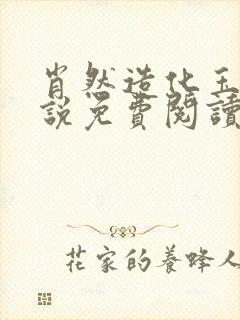 肖然造化玉
說免費閱讀
花家的養蜂人